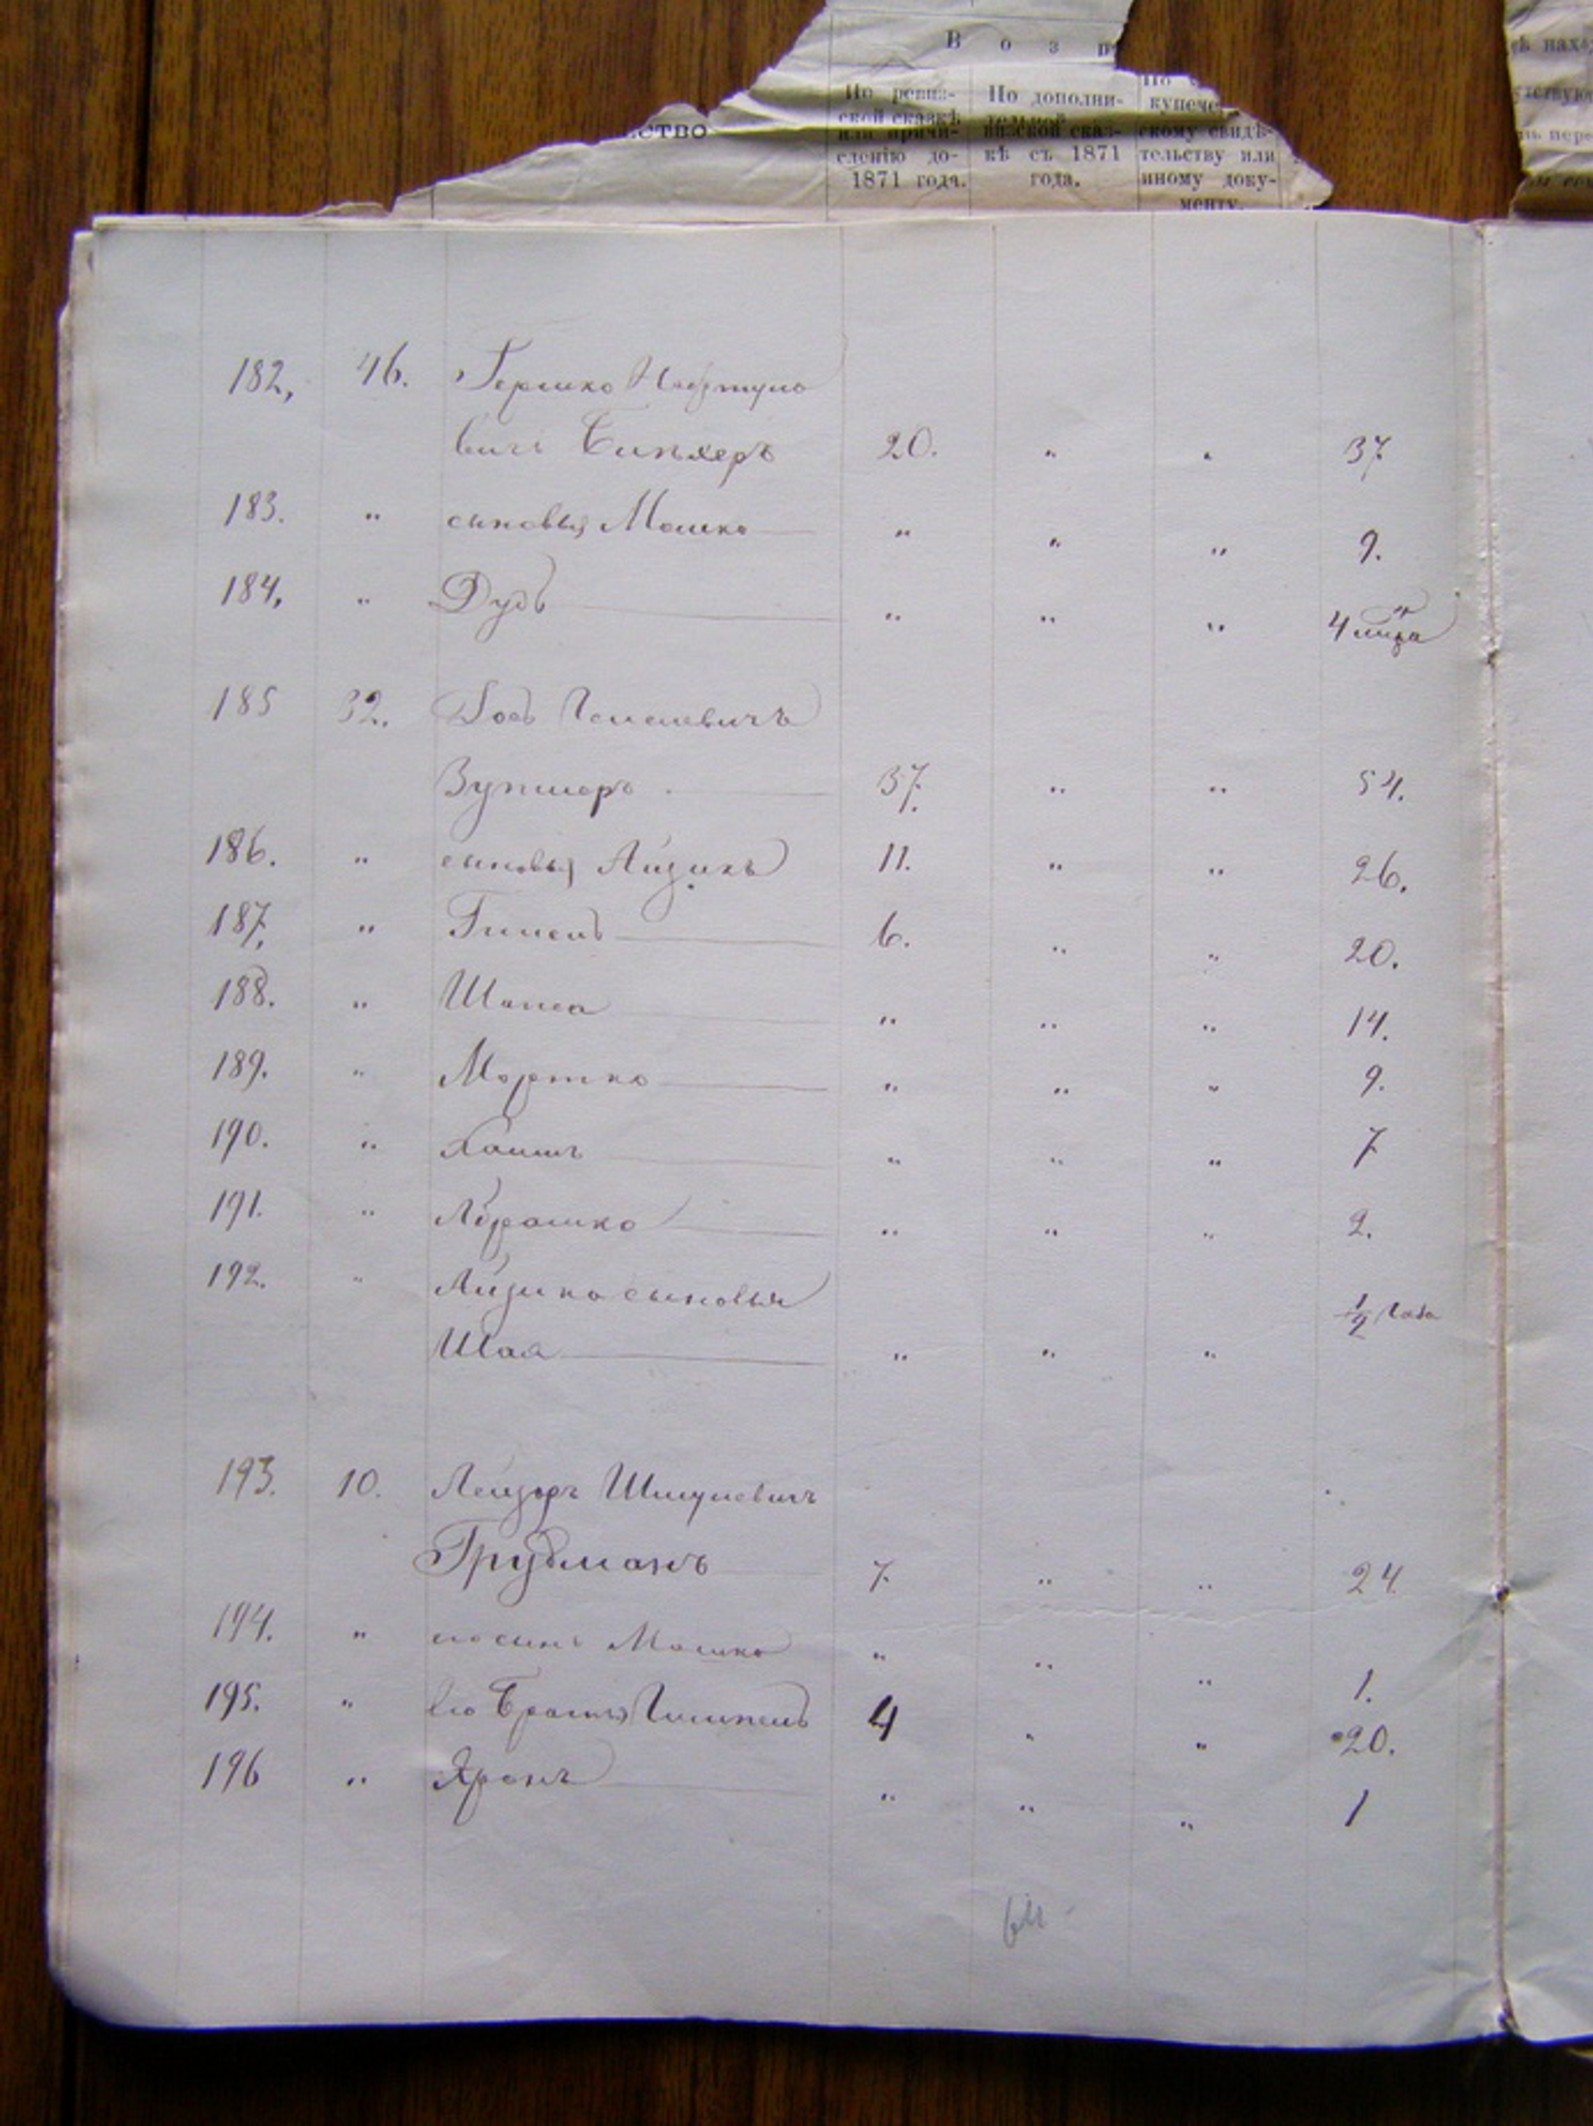 В о з р
ство
По ревиз-
ской сказкѣ
или причи-
сленію до-
1871 года.
По дополни-
тельной
ской сказ-
кѣ съ 1871
года.
По
купече
скому свидѣ-
тельству или
иному доку-
менту.
182, 46. Гершко Нафтуло
вичъ 20. " " 37
183. " сыновья Мошко " " " 9.
184, " Дудь " " " 4
185 32.
37. " " 54.
186. " сыновья Айзикъ 11. " " 26.
187, " Гимпель 6. " " 20.
188. " Шапса " " " 14.
189. " Мортко " " " 9.
190. " Хаимъ " " " 7
191. " Абрашко " " " 2.
192. " Айзика сыновья
1/2 года
Шая " " "
193. 10. Лейзоръ Шмулевичъ
Грубманъ 7. " " 24
194. " его сынъ Мошко " " " 1.
195. " Его Братья Гимпель 4 " " 20.
196 " " " " 1